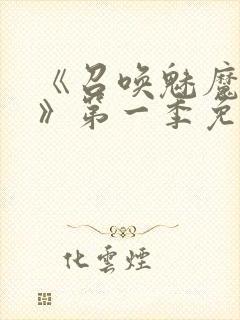 《召唤魅魔
》第一季免
化雲煙